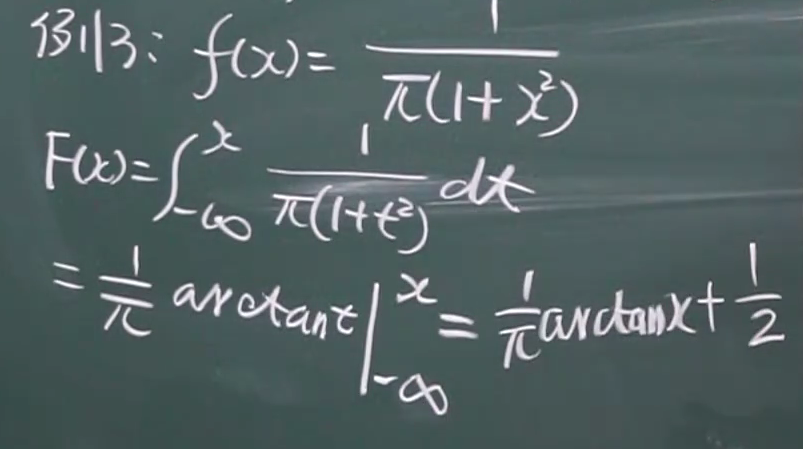 例3: f(x)= 1/π(1+x²)
F(x)=∫_{-∞}^{x} 1/π(1+t²) dt
= 1/π arctan t |_{-∞}^{x} = 1/π arctan x + 1/2